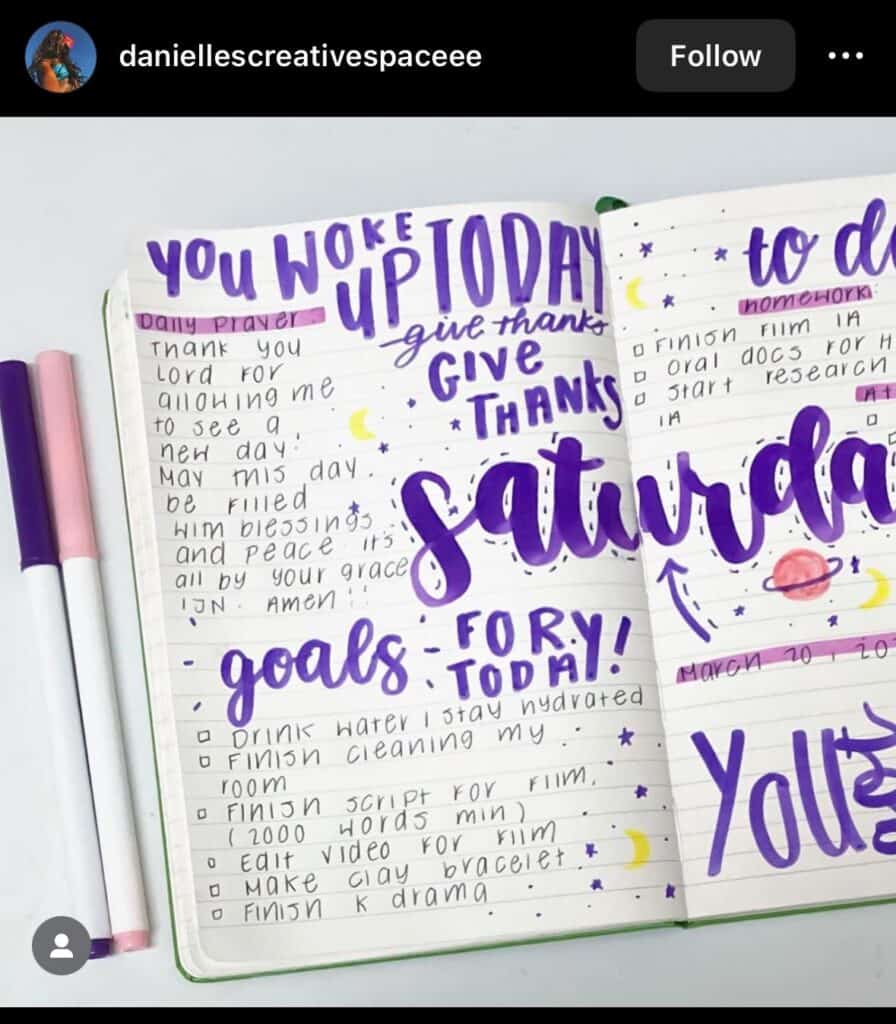 daniellescreativespaceee
Follow
YOU WOKE
UP TODAY
give thanks
GIVE
THANKS
Daily Prayer
THANK YOU
LORD FOR
allowing me
to see a
new day.
May this day
be filled
with blessings
and peace it's
all by your grace
IJN. Amen!!
Saturda
goals - FOR
TODAY!
Drink water / stay hydrated
Finish cleaning my
room
Finish script for film.
(2000 words min)
Edit video for film
Make clay bracelet
Finish k drama
to do
homework:
Finish film IA
oral docs for H
start research
IA
At
March 20, 20
You